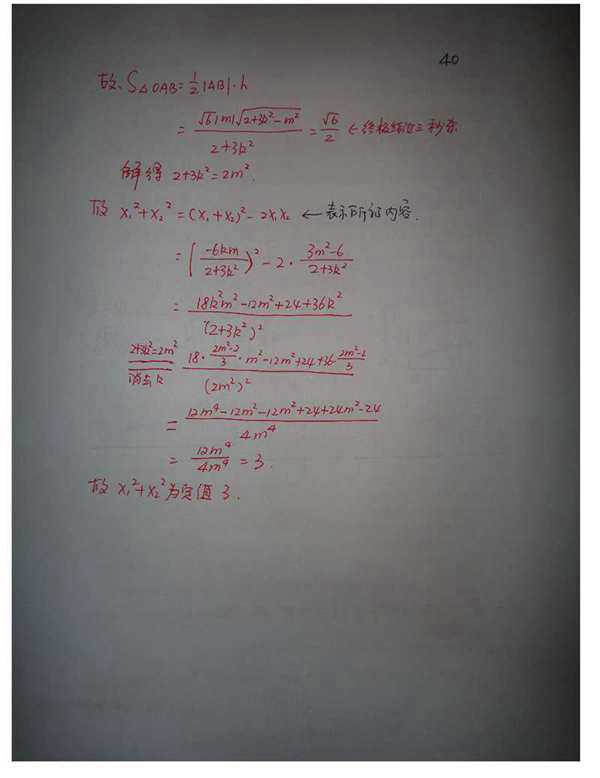 40
故、S△OAB=1/2|AB|·h
=√6|m|√(2+3k²-m²)/(2+3k²)=√6/2 ←终极结论三秒杀
解得 2+3k²=2m².
故 x₁²+x₂²=(x₁+x₂)²-2x₁x₂ ←表示所证内容.
=(-6km/(2+3k²))²-2·(3m²-6)/(2+3k²)
=(18k²m²-12m²+24+36k²)/(2+3k²)²
2+3k²=2m² 消去k (18·(2m²-2)/3·m²-12m²+24+36(2m²-2)/3)/(2m²)²
=(12m⁴-12m²-12m²+24+24m²-24)/4m⁴
=12m⁴/4m⁴=3.
故 x₁²+x₂²为定值 3.